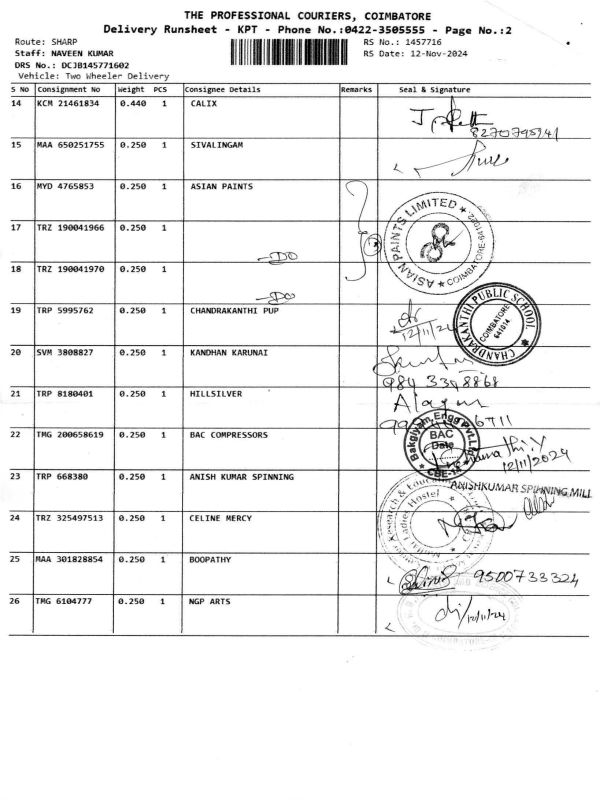 THE PROFESSIONAL COURIERS, COIMBATORE
Delivery Runsheet - KPT - Phone No.:0422-3505555 - Page No.:2
Route: SHARP RS No.: 1457716
Staff: NAVEEN KUMAR RS Date: 12-Nov-2024
DRS No.: DCJB145771602
Vehicle: Two Wheeler Delivery
S No Consignment No Weight PCS Consignee Details Remarks Seal & Signature
14 KCM 21461834 0.440 1 CALIX
8270795941
15 MAA 650251755 0.250 1 SIVALINGAM
16 MYD 4765853 0.250 1 ASIAN PAINTS
ASIAN PAINTS LIMITED ★ COIMBATORE-641002 ★
17 TRZ 190041966 0.250 1
-DO
18 TRZ 190041970 0.250 1
-DO
19 TRP 5995762 0.250 1 CHANDRAKANTHI PUP
12/11/24
CHANDRAKANTHI PUBLIC SCHOOL
COIMBATORE
641014
20 SVM 3808827 0.250 1 KANDHAN KARUNAI
984 3398868
21 TRP 8180401 0.250 1 HILLSILVER
22 TMG 200658619 0.250 1 BAC COMPRESSORS
Bakgiyam Engg Pvt.Ltd
BAC
Date
12/11/2024
23 TRP 668380 0.250 1 ANISH KUMAR SPINNING
ANISHKUMAR SPINNING MILL
24 TRZ 325497513 0.250 1 CELINE MERCY
Ladies Hostel
25 MAA 301828854 0.250 1 BOOPATHY
9500733324
26 TMG 6104777 0.250 1 NGP ARTS
12/11/24